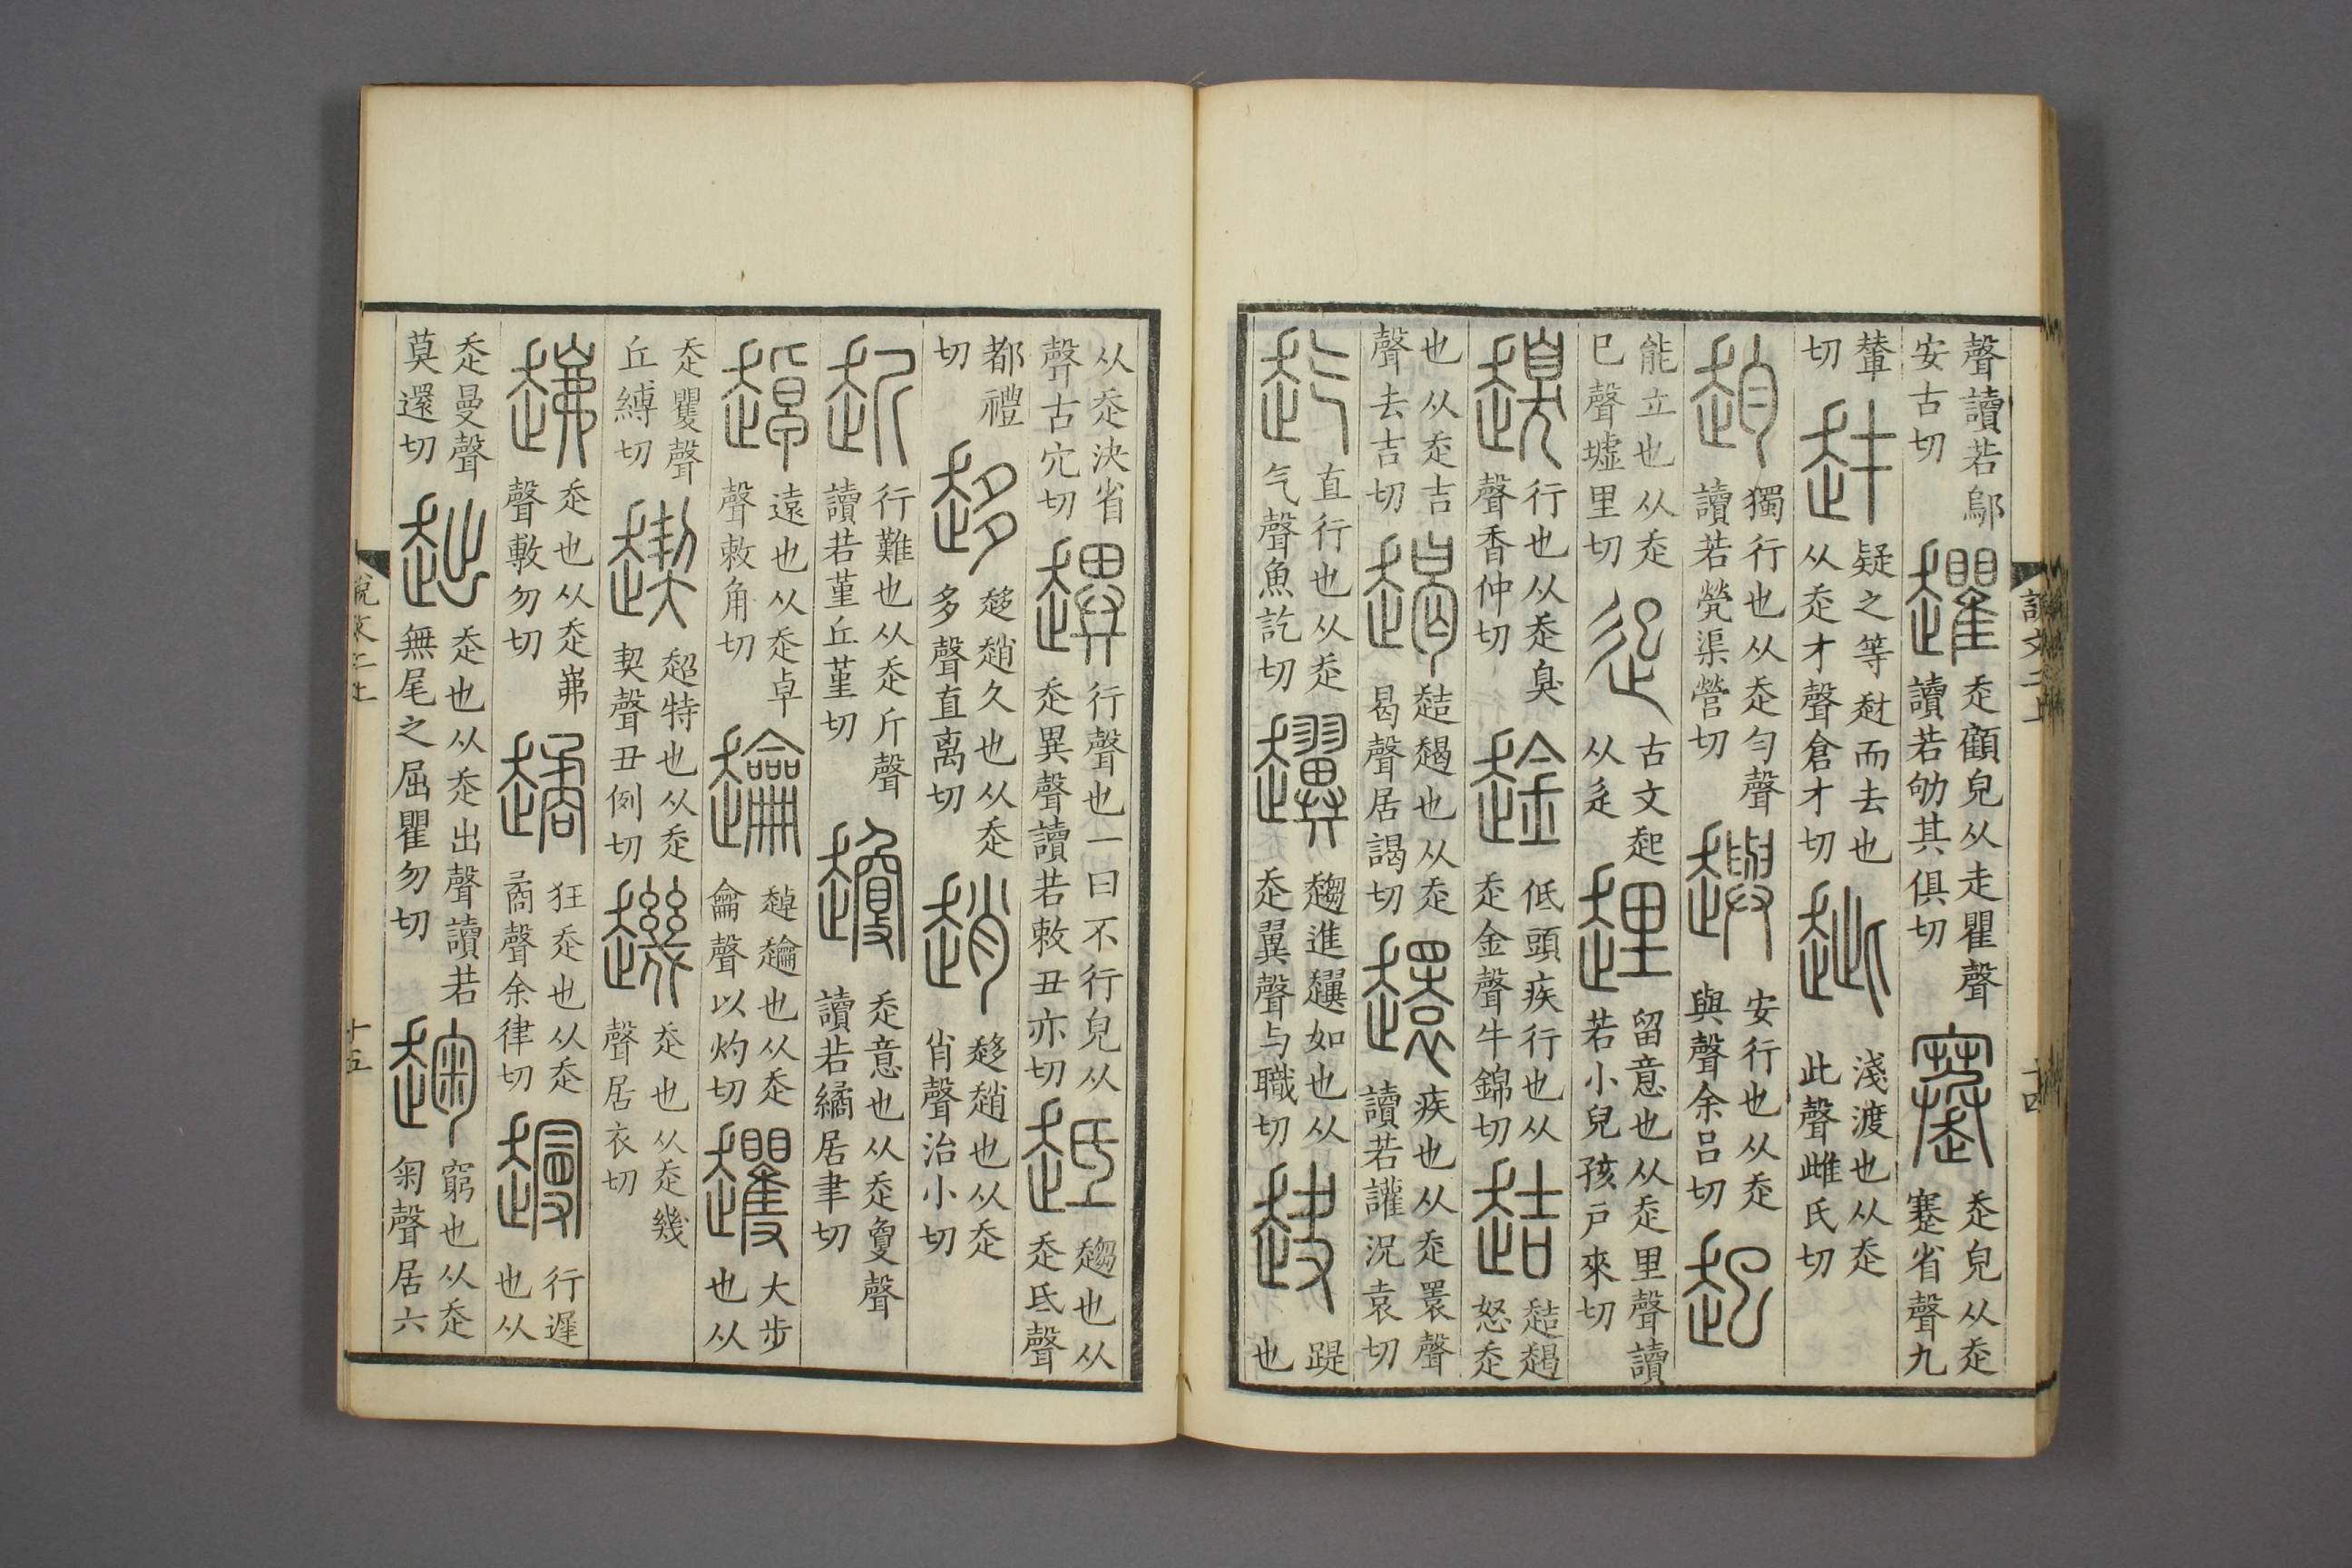 聲讀若鄔安古切
趯走顧皃从走瞿聲讀若劬其俱切
走皃从走蹇省聲九
輦切
疑之等而去也从走才聲倉才切
趀淺渡也从走此聲雌氏切
赹獨行也从走匀聲讀若煢渠營切
趣安行也从走與聲余吕切
起能立也从走巳聲墟里切
古文起从辵
留意也从走里聲讀若小兒孩戶來切
行也从走臭聲香仲切
趛低頭疾行也从走金聲牛錦切
趌趌趨怒走也从走吉聲去吉切
趌也从走曷聲居謁切
趯疾也从走瞏聲讀若讙況袁切
赺直行也从走气聲魚訖切
趩趨進如也从走翼聲与職切
趹踶也
說文二上
十四
从走決省聲古穴切
趩行聲也一曰不行皃从走異聲讀若敕丑亦切
趆趨也从走氐聲都禮切
趍趍趙久也从走多聲直离切
趙趍趙也从走肖聲治小切
赾行難也从走斤聲讀若堇丘堇切
走意也从走敻聲讀若繘居聿切
趠遠也从走卓聲敕角切
趠也从走龠聲以灼切
大步也从走矍聲丘縛切
超特也从走契聲丑例切
走也从走幾聲居衣切
走也从走岪聲敷勿切
趫狂走也从走矞聲余律切
行遲也从走曼聲莫還切
走也从走出聲讀若無尾之屈瞿勿切
窮也从走匊聲居六
說文二上
十五